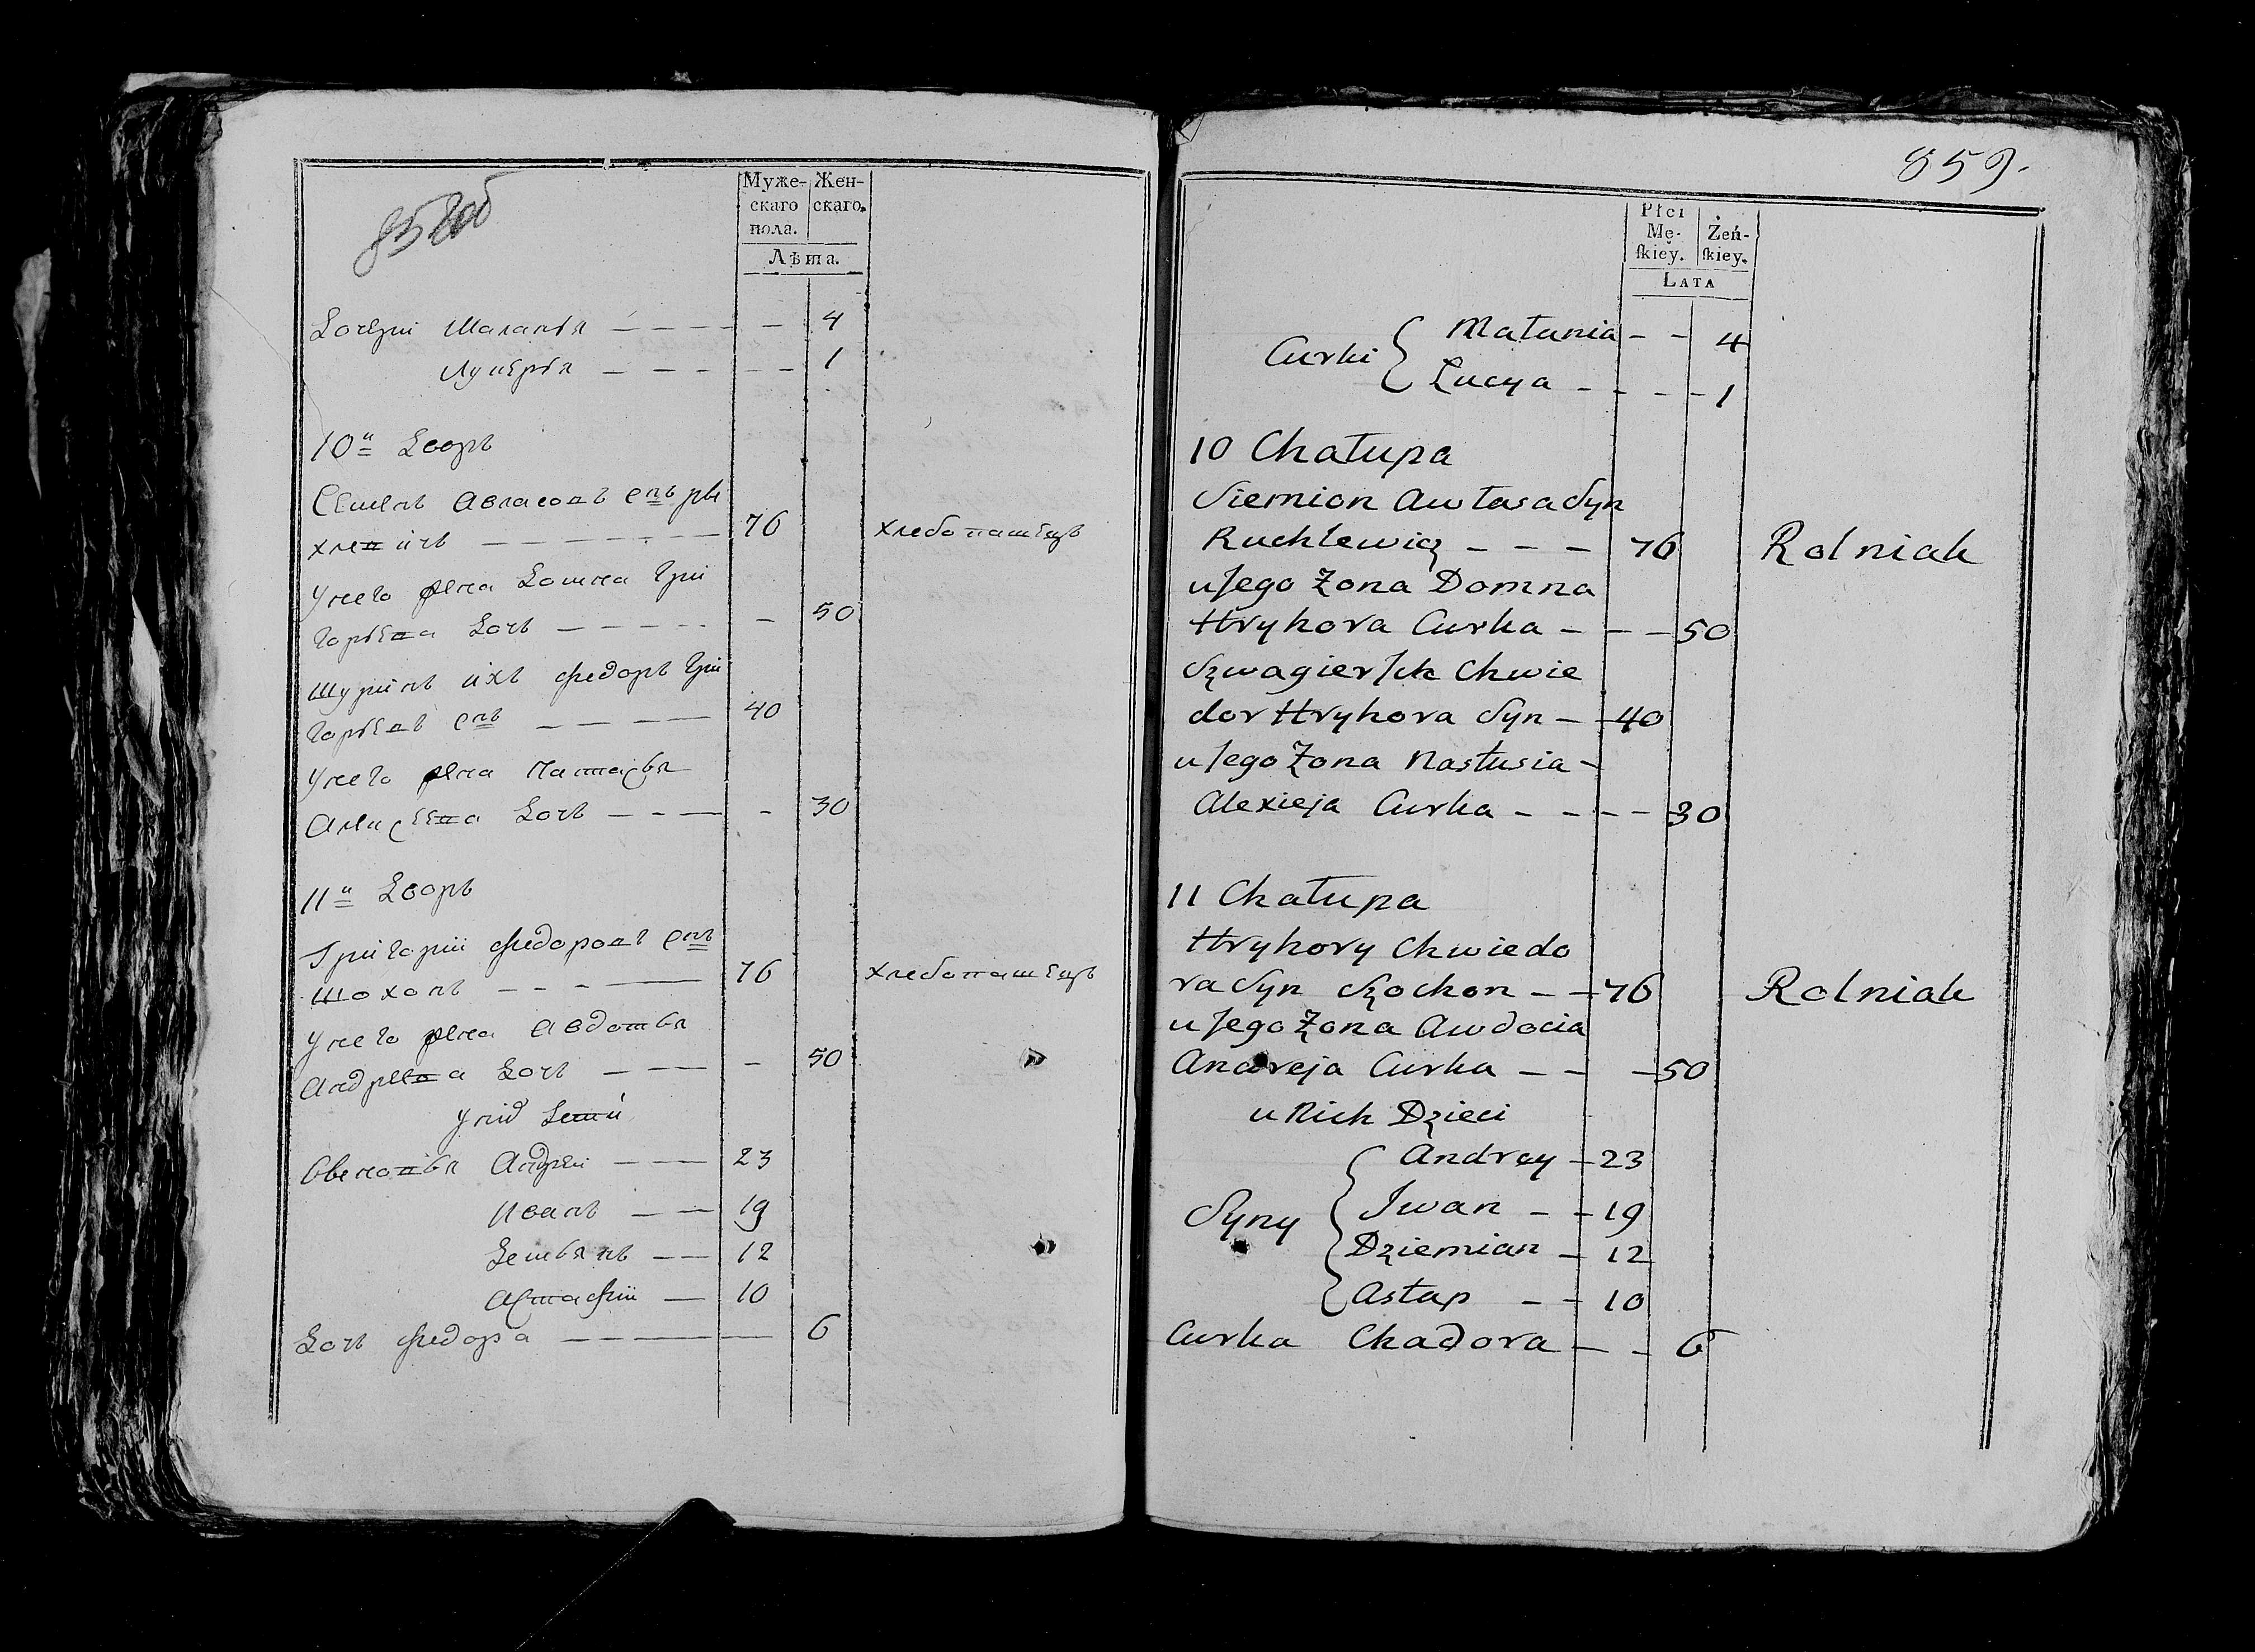 858об
Муже- Жен-
скаго скаго.
пола.
Лѣта.
Дочери Маланья — — — — — 4
Лукерья — — — — — 1
10й Дворъ
Семенъ Авласовъ снъ Ру
хлевичъ — — — — — 76 хлебопашецъ
У него жена Домна Гри
горьева Дочь — — — — — 50
Шуринъ ихъ Федоръ Гри
горьевъ снъ — — — — 40
У него жена Настасья
Алексеева Дочь — — — — 30
11й Дворъ
Григорий Федоровъ снъ
Шохонъ — — — — 76 хлебопашецъ
У него жена Авдотья
Андреева Дочь — — — — 50
У них Дети
Сыновья Андрей — — 23
Иванъ — — 19
Демьянъ — — 12
Астафий — 10
Дочь Федора — — — — 6
859.
Płci
Mę- Żeń-
skiey. skiey.
LATA
Curki { Małania — — 4
Łucya — — — — 1
10 Chałupa
Siemion Awłasa Syn
Ruchlewicz — — — 76 Rolniak
u Jego Żona Domna
Hryhora Curka — — — 50
Szwagier Ich Chwie
dor Hryhora Syn — — 40
u Jego Żona Nastusia —
Alexieja Curka — — — — 30
11 Chałupa
Hryhory Chwiedo
ra Syn Szochon — — 76 Rolniak
u Jego Żona Awdocia
Andreja Curka — — — 50
u Nich Dzieci
Andrey — 23
Syny { Iwan — — 19
Dziemian — 12
Astap — — 10
Curka Chadora — — 6